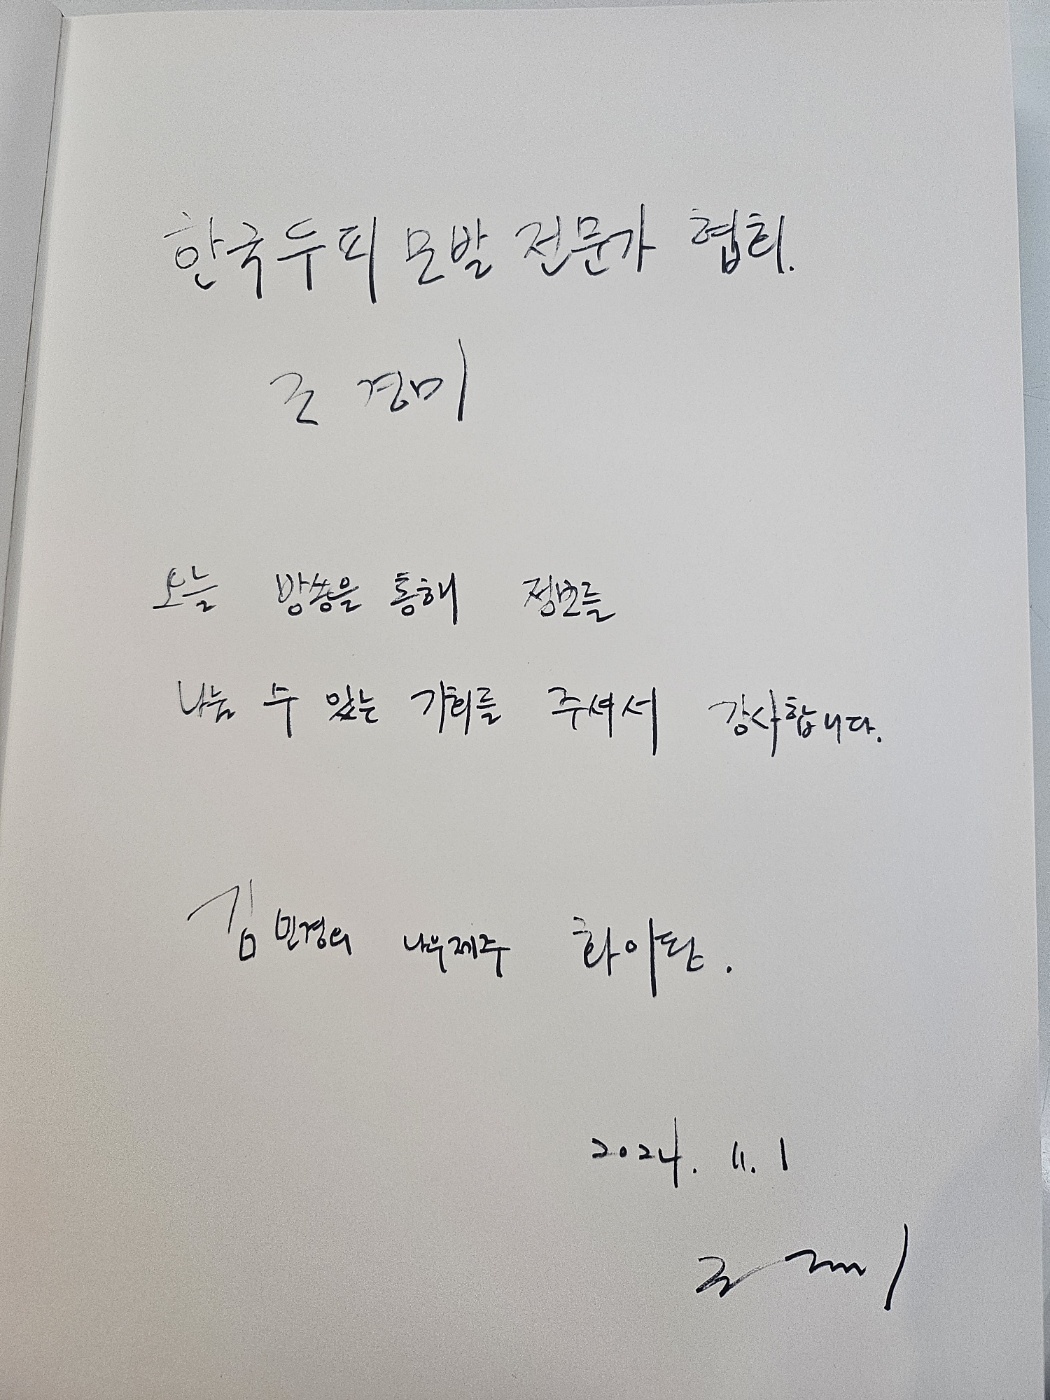 한국두피 모발 전문가 협회.
조 경미
오늘 방송을 통해 정보를
나눌 수 있는 기회를 주셔서 감사합니다.
김민경의 나우제주 화이팅.
2024. 11. 1
조